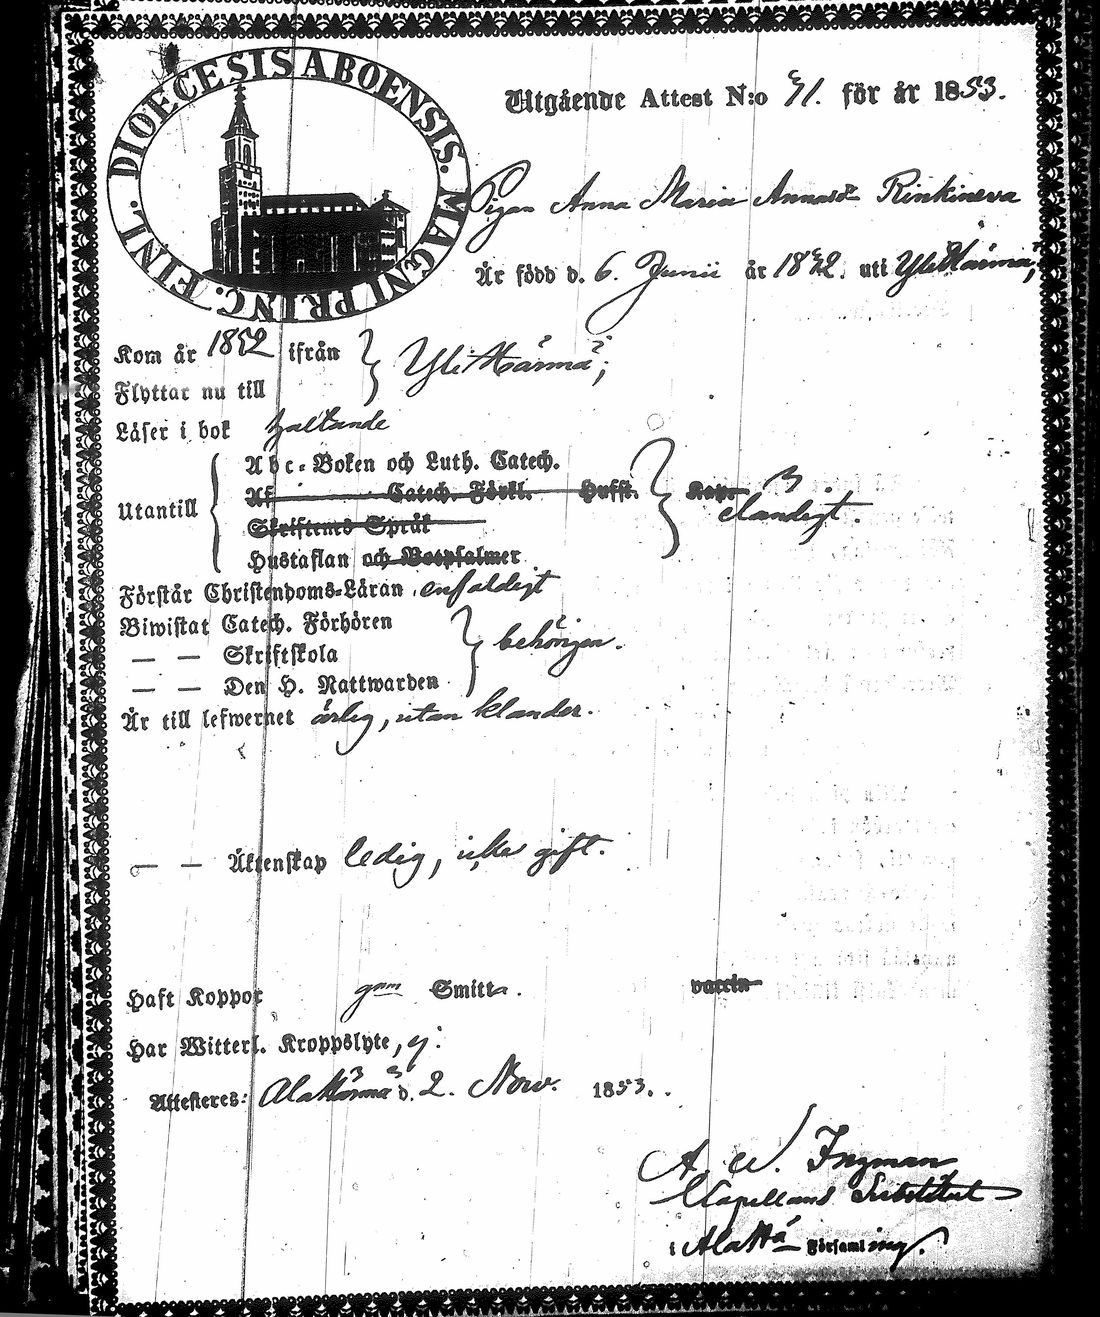 DIOECESIS ABOENSIS. MAGNI PRINC. FINL.
Utgående Attest N:o 41. för år 1853.
Pigan Anna Maria Annasdr Rinkineva
Är född d. 6. Junii år 1832. uti YliHärmä,
Kom år 1852 ifrån
YliHärmä;
Flyttar nu till
Läser i bok hallande
Abc-Boken och Luth. Catech.
Af Catech. Förkl. Hufst. Kap.
Utantill
Skriftenes Språk
Hustaflan och Botpsalmer
Förstår Christendoms-Läran enfaldigt
Biwistat Catech. Förhören
— — Skriftskola
behörigen.
— — Den H. Nattwarden
Är till lefwernet ärlig, utan klander.
— — Äktenskap ledig, icke gift.
Haft Koppor gnm Smitta. vaccin
Har Witterl. Kroppslyte, ej.
Attesteres: AlaHärmä d. 2. Nov. 1853.
A. W. Ingman
Capellans Substitut
i AlaHä Församling.